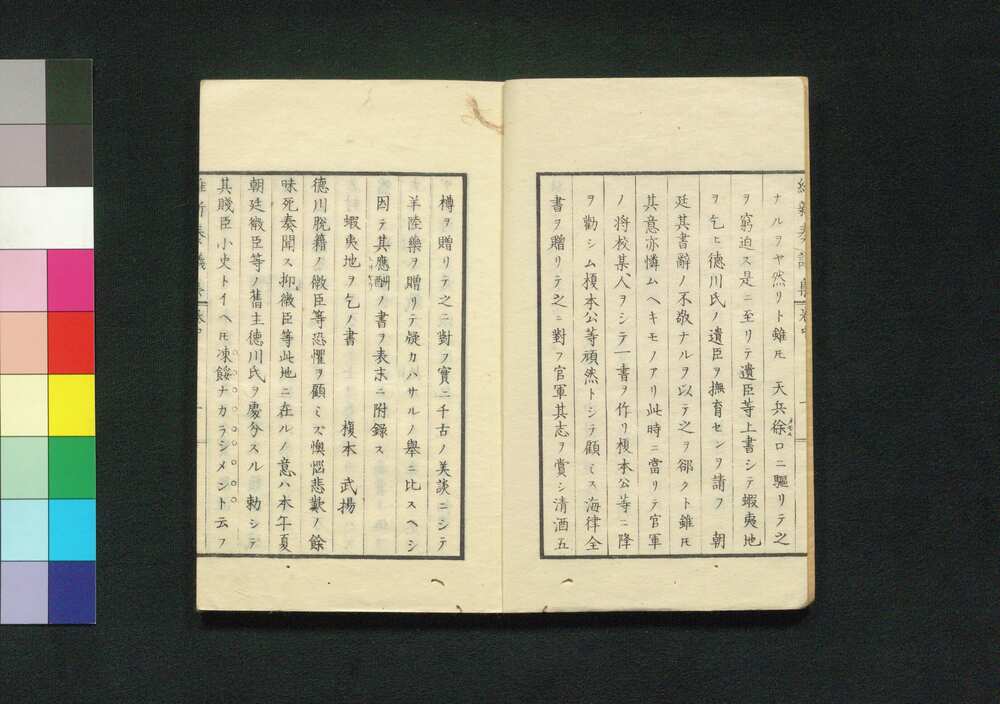 ナルヲヤ然リト雖モ　天兵徐ロニ驅リテ之
ヲ窮迫ス是ニ至リテ遺臣等上書シテ蝦夷地
ヲ乞ヒ德川氏ノ遺臣ヲ撫育センヲ請フ　朝
廷其書辭ノ不敬ナルヲ以テ之ヲ郤クト雖モ
其意亦憐ムヘキモノアリ此時ニ當リテ官軍
ノ將校某、人ヲシテ一書ヲ作リ榎本公等ニ降
ヲ勸シム榎本公等頑然トシテ顧ミス海律全
書ヲ贈リテ之ニ對フ官軍其志ヲ賞シ清酒五
樽ヲ贈リテ之ニ對フ實ニ千古ノ美談ニシテ
羊陸藥ヲ贈リテ疑カハサルノ擧ニ比スヘシ
因テ其應酬ノ書ヲ表末ニ附錄ス
蝦夷地ヲ乞ノ書　　榎本　武揚
德川脫籍ノ微臣等恐懼ヲ顧ミス懊惱悲歎ノ餘
昧死奏聞ス抑微臣等此地ニ在ルノ意ハ本年夏
朝廷微臣等ノ舊主德川氏ヲ處分スル　勅シテ
其賤臣小史トイヘモ凍餒ナカラシメント云フ